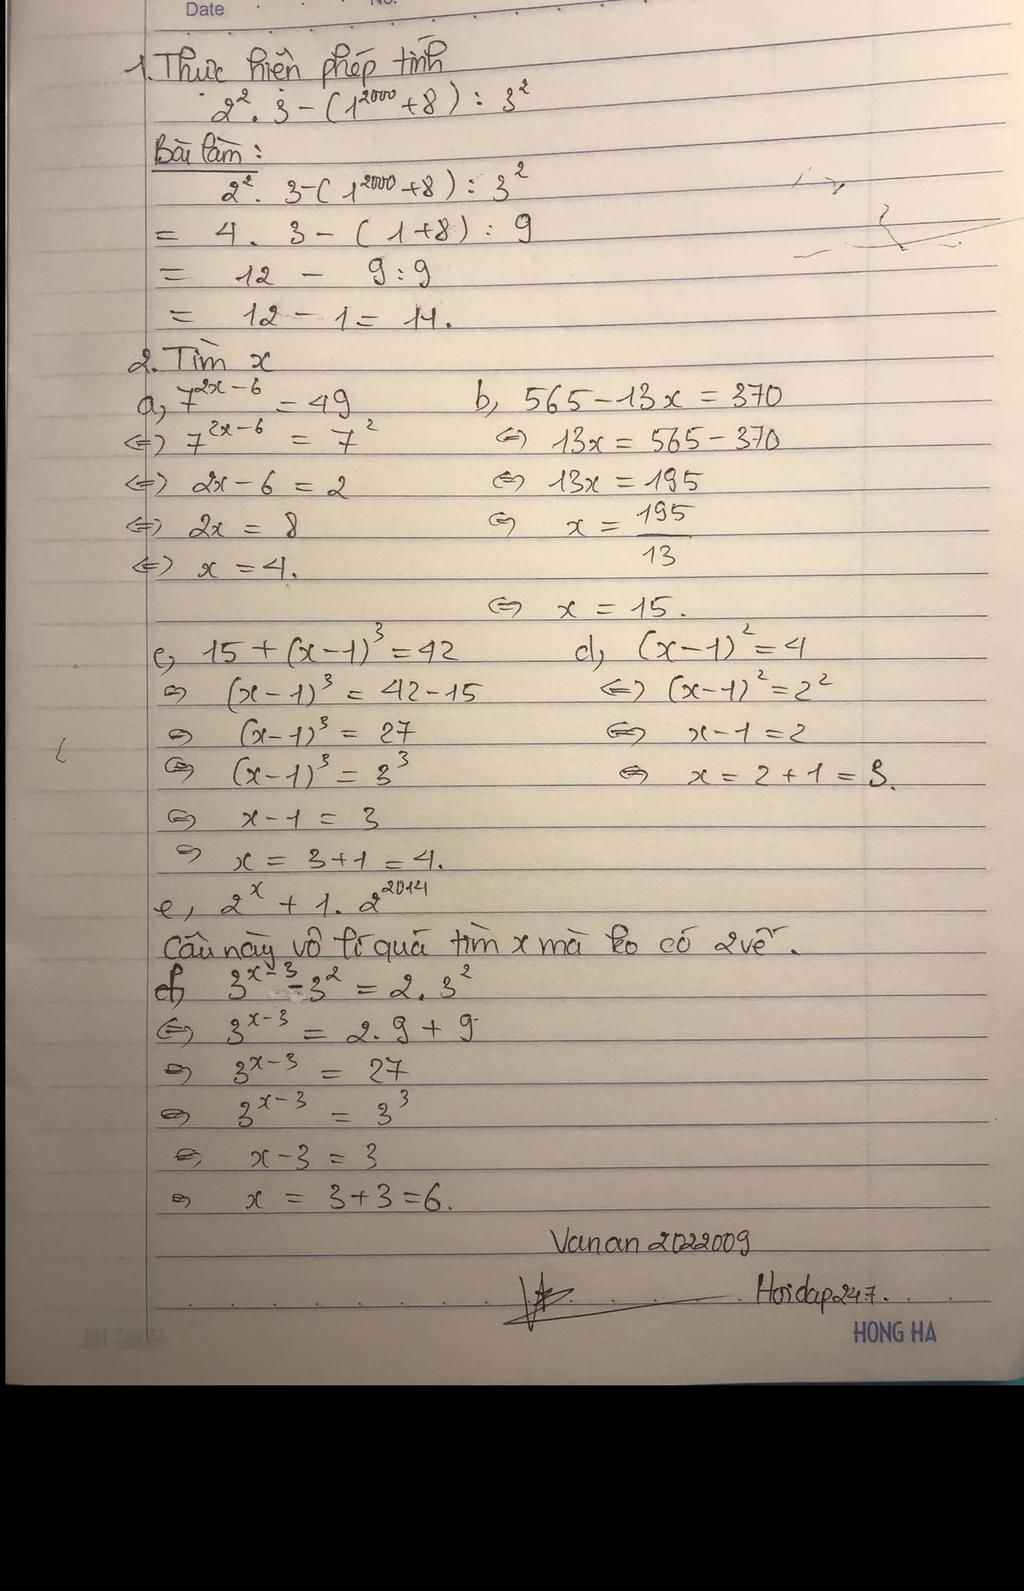 Date No.
1. Thực hiện phép tính
2². 3 - (1²⁰⁰⁰ + 8) : 3²
Bài làm :
2². 3 - (1²⁰⁰⁰ + 8) : 3²
= 4. 3 - (1 + 8) : 9
= 12 - 9 : 9
= 12 - 1 = 11.
2. Tìm x
a, 7^{2x-6} = 49 b, 565 - 13x = 370
⇔ 7^{2x-6} = 7² ⇔ 13x = 565 - 370
⇔ 2x - 6 = 2 ⇔ 13x = 195
⇔ 2x = 8 ⇔ x = 195/13
⇔ x = 4.
⇔ x = 15.
c, 15 + (x-1)³ = 42 d, (x-1)² = 4
⇔ (x-1)³ = 42 - 15 ⇔ (x-1)² = 2²
⇔ (x-1)³ = 27 ⇔ x - 1 = 2
⇔ (x-1)³ = 3³ ⇔ x = 2 + 1 = 3.
⇔ x - 1 = 3
⇔ x = 3 + 1 = 4.
e, 2^x + 1. 2²⁰¹⁴
Câu này vô lí quá tìm x mà ko có 2 vế.
f, 3^{x-3} - 3² = 2. 3²
⇔ 3^{x-3} = 2. 9 + 9
⇔ 3^{x-3} = 27
⇔ 3^{x-3} = 3³
⇔ x - 3 = 3
⇔ x = 3 + 3 = 6.
Vanan 2022009
Hoidap247.
HONG HA